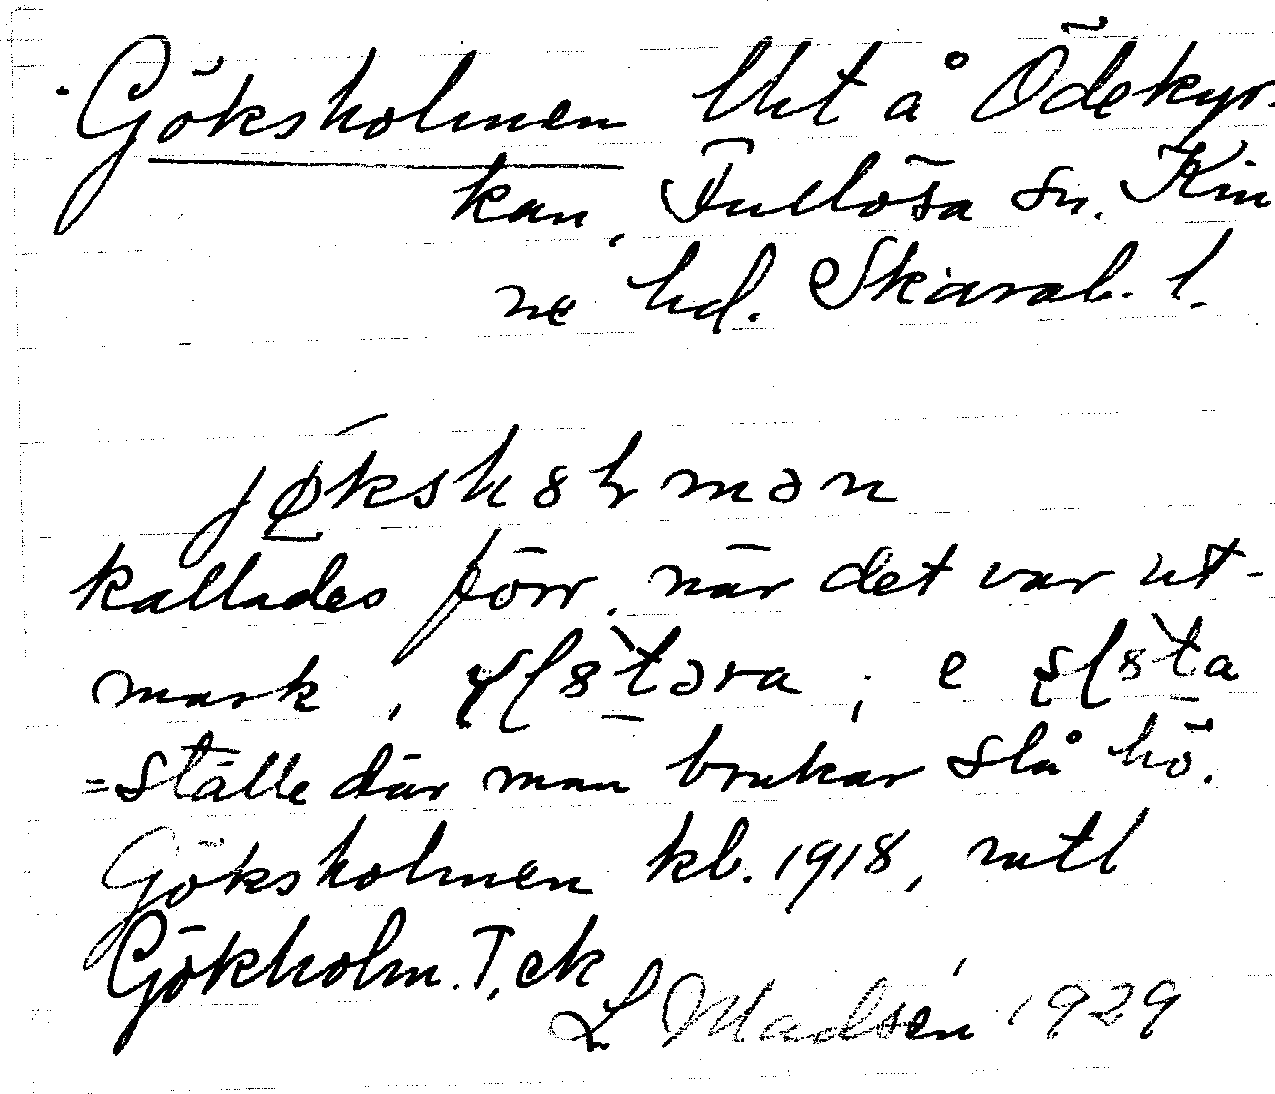 Göksholmen lht å Ödekyr-
kan, Fullösa sn. Kin
ne hd. Skarab. l.
jøkshɵlmən
kallades förr, när det var ut-
mark,
= ställe där man brukar slå hö.
Göksholmen kb. 1918, mtl
Gökholm. T. ek
L Madsén 1929